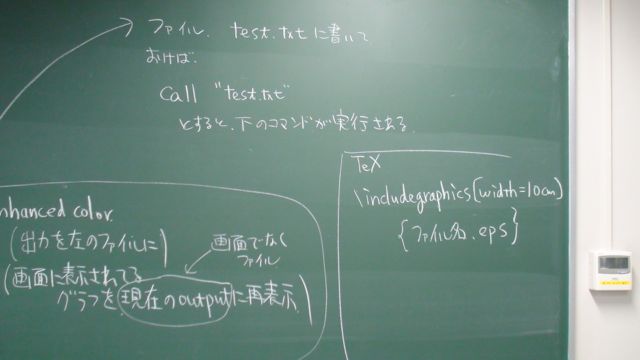 ファイル. test.txtに書いて
おけば.
call "test.txt"
とすると、下のコマンドが実行される.
TeX
\includegraphics[width=10cm]
{ファイル名.eps}
nhanced color
(出力を左のファイルに)
画面でなく
ファイル
(画面に表示されてる
グラフを現在のoutputに再表示)